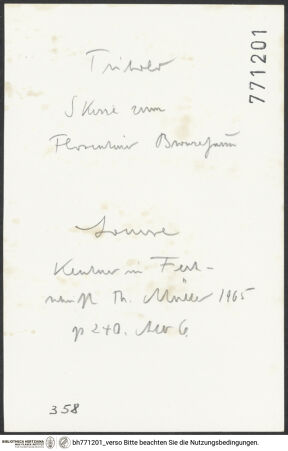 771201
Tribolo
Skizze zum
Florentiner Brunnen
Louvre
Keutner in Fest-
Th. Müller 1965
p 240. Abb 6.
358
BIBLIOTHECA HERTZIANA bh771201_verso Bitte beachten Sie die Nutzungsbedingungen.